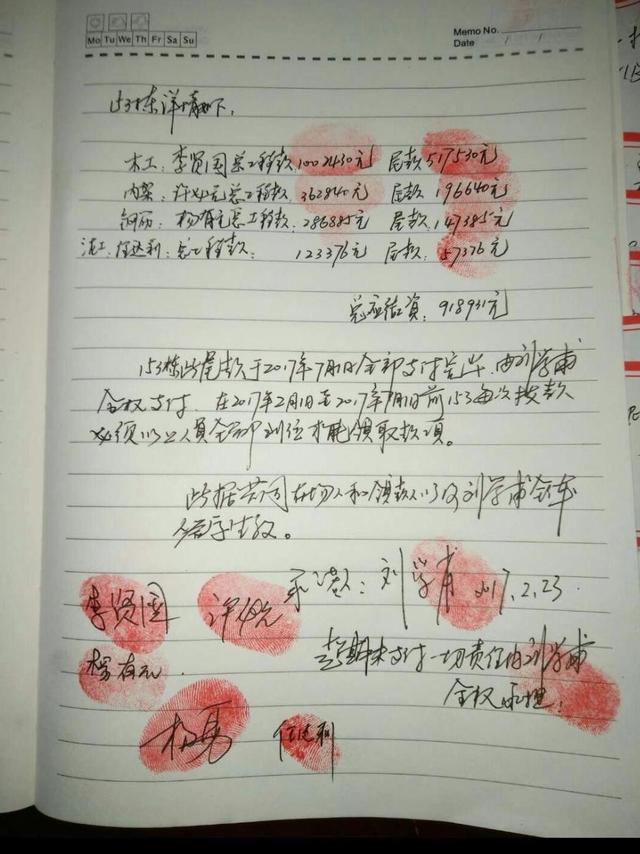 Memo No.
Mo Tu We Th Fr Sa Su
Date / /
153栋详情如下.
木工:李贤国总工程款,1002430元 尾款,517530元
内架:许如元总工程款,362840元 尾款,196640元
钢筋:杨有元总工程款,286885元 尾款,147385元
泥工,任达利:总工程款: 123376元 尾款:57376元
总应结资:918931元
153栋此尾款于2017年7月1日全部支付完毕.由刘学甫
全权支付.在2017年2月1日至2017年7月1日前153每次拨款
必须以上人员全部到位才能领取款项。
此据共同在场人和领款人以及刘学甫全车
签字生效。
承诺人:刘学甫 2017.2.23.
李贤国 许如元
超期未支付一切责任由刘学甫
杨有元.
全权承担.
任达利